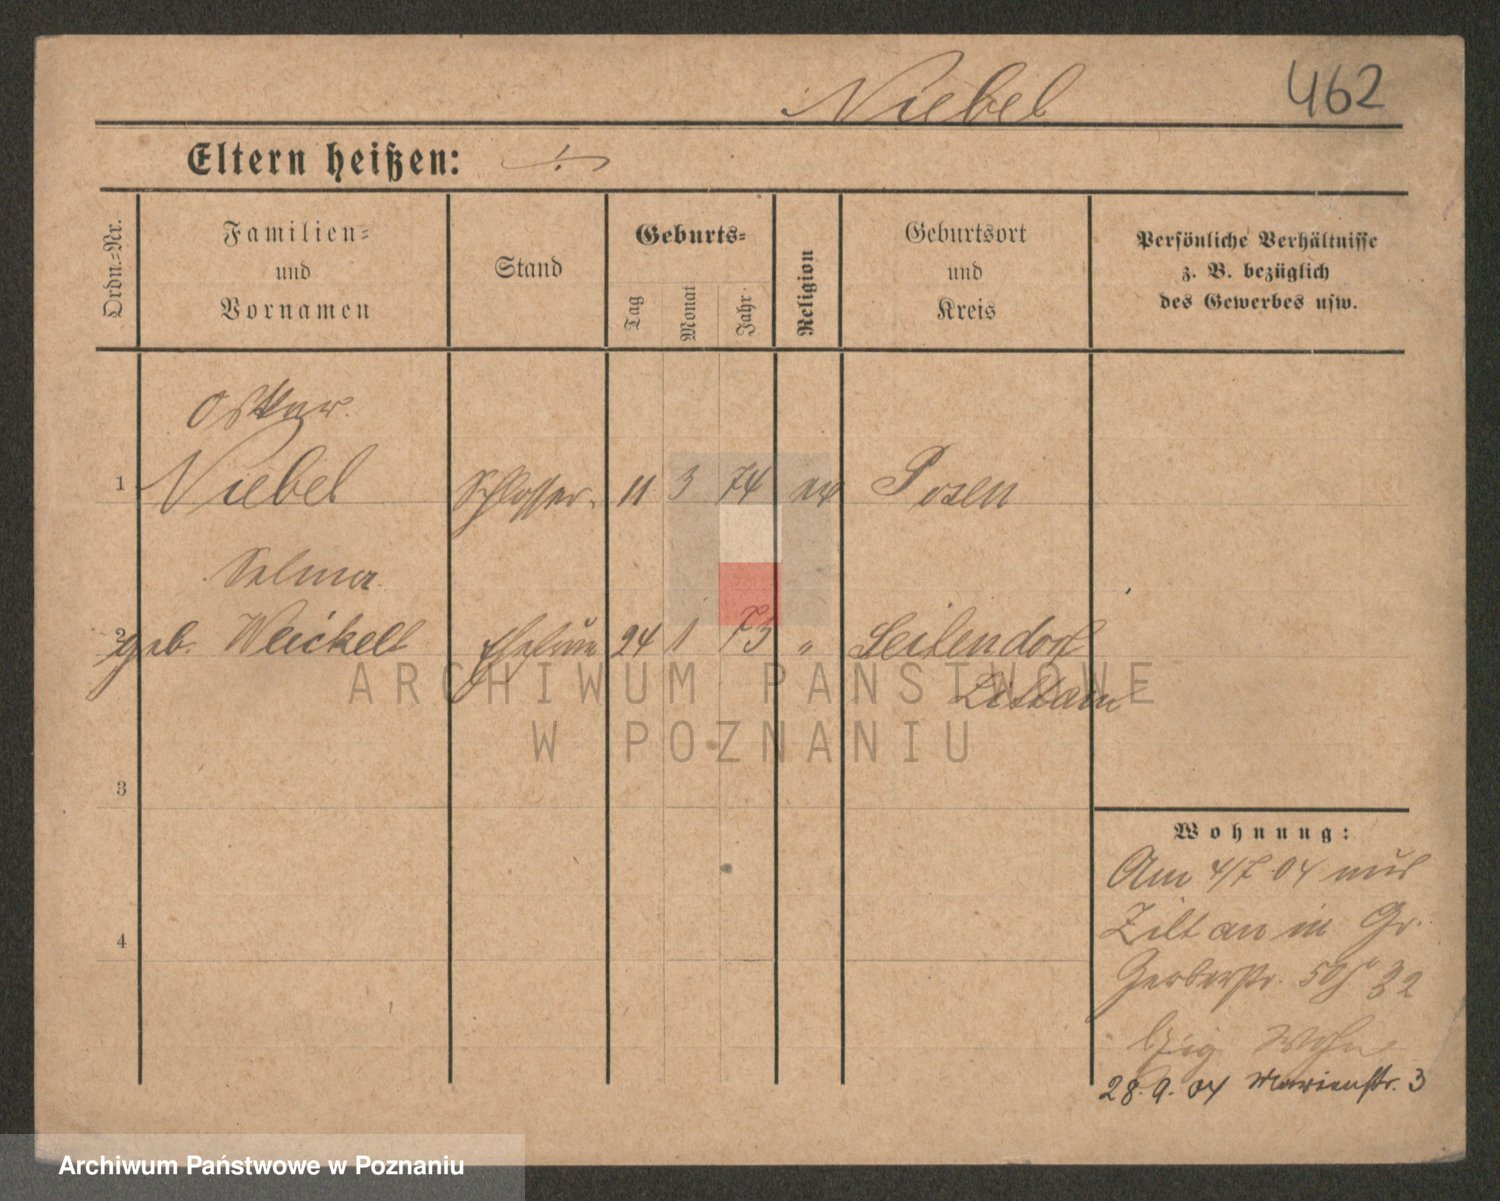 Niebel
462
Eltern heißen: ÷
Ordn.-Nr.
Familien-
und
Vornamen
Stand
Geburts-
Tag
Monat
Jahr
Religion
Geburtsort
und
Kreis
Persönliche Verhältnisse
z. B. bezüglich
des Gewerbes usw.
Oskar
1 Niebel Schlosser 11 3 74 ev Posen
Selma
2 geb. Weickelt Ehefrau 24 1 73 " Seitendorf
Zittau
ARCHIWUM PAŃSTWOWE
W POZNANIU
3
Wohnung:
Am 4/7 04 aus
in Gr.
4
Gerberstr. 32
Wohn
28.9.04 Marienstr. 3
Archiwum Państwowe w Poznaniu